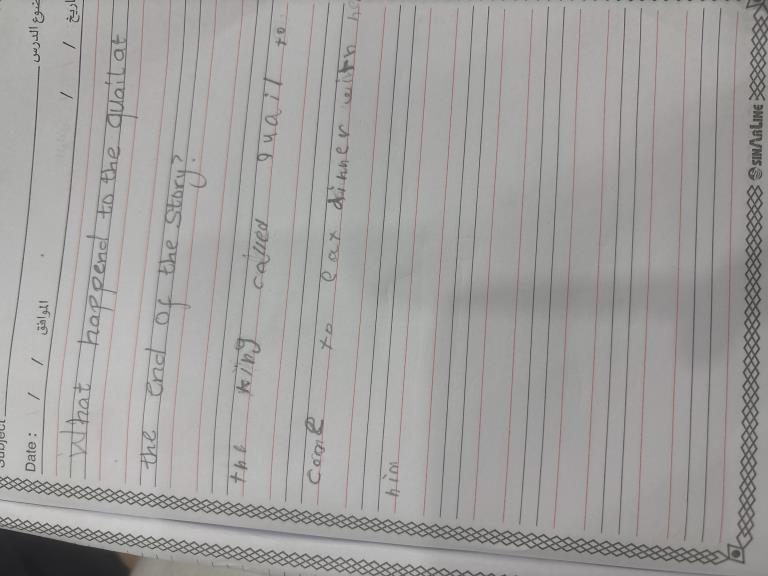 Subject
موضوع الدرس
Date : / / الموافق / / التاريخ
What happend to the quail at
the end of the story?
the king called quail to
come to eat dinner with
him
SINARLINE